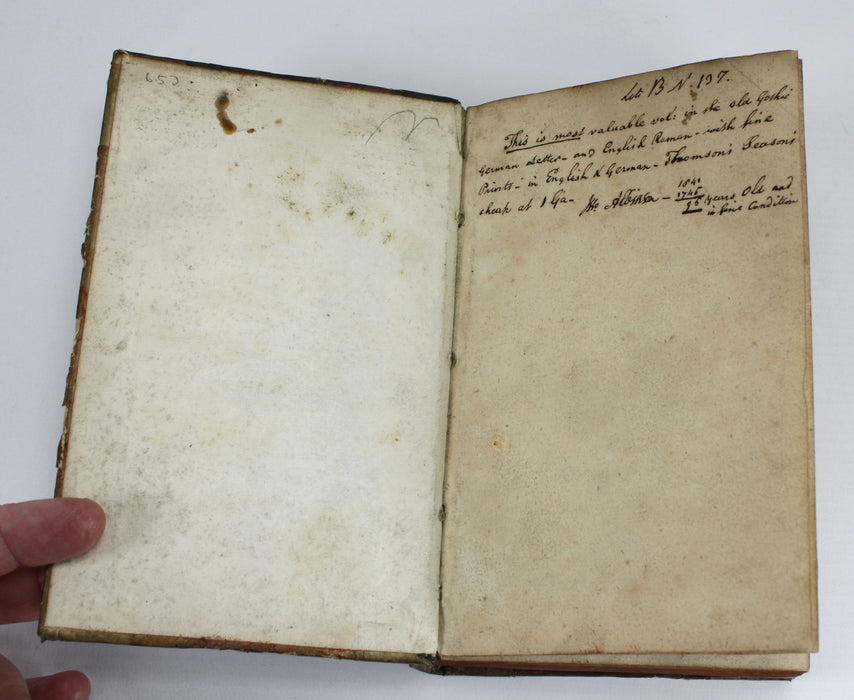 653
Lot B N. 197.
This is most valuable vol: in the old Gothic
German Letter - and English Roman - with fine
Prints - in English & German - Thomson's Seasons
cheap at 1 Ga - 1841
1745
96 years Old and
in fine Condition